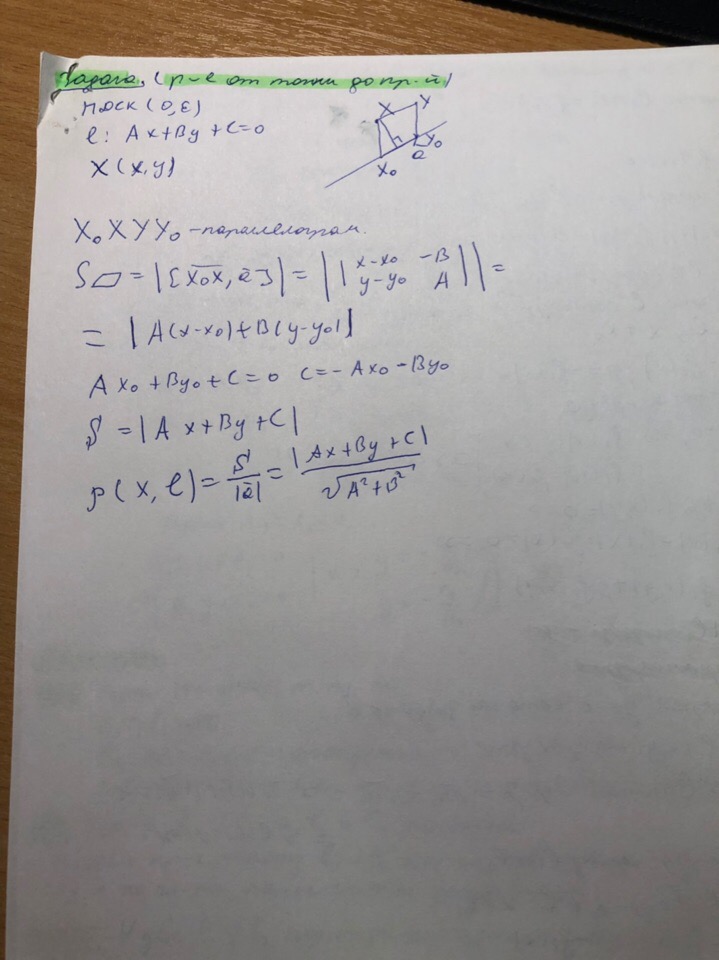 Задача. (р-е от точки до пр-й)
ПДСК (O, ε)
l: Ax+By+C=0
X(x,y)
X Y
X₀ a Y₀
X₀XYY₀ - параллелограм.
S▱ = |[X₀X, ā]| = | |x-x₀ -B
y-y₀ A| | =
= |A(x-x₀)+B(y-y₀)|
Ax₀+By₀+C=0 C=-Ax₀-By₀
S = |Ax+By+C|
ρ(X, l) = S/|ā| = |Ax+By+C|/√A²+B²